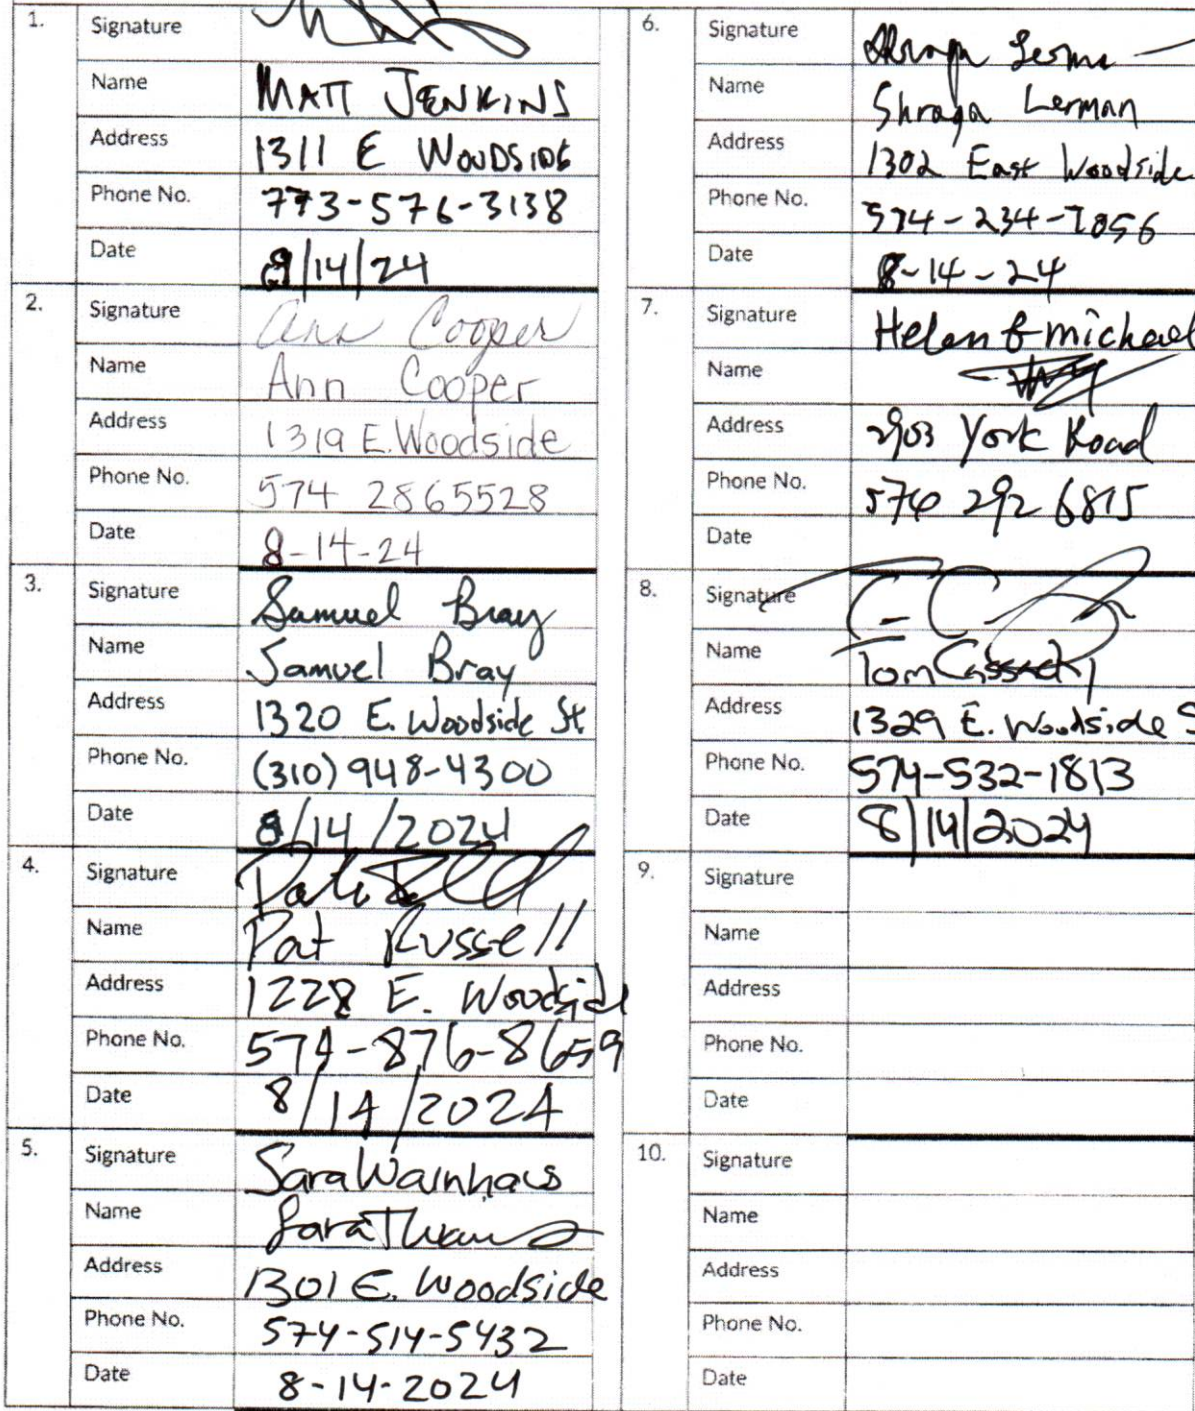 1.
Signature
Name MATT JENKINS
Address 1311 E WOODSIDE
Phone No. 773-576-3138
Date 8/14/24
2.
Signature Ann Cooper
Name Ann Cooper
Address 1319 E. Woodside
Phone No. 574 2865528
Date 8-14-24
3.
Signature Samuel Bray
Name Samuel Bray
Address 1320 E. Woodside St
Phone No. (310) 948-4300
Date 8/14/2024
4.
Signature
Name Pat Russell
Address 1228 E. Woodside
Phone No. 574-876-8659
Date 8/14/2024
5.
Signature Sara Wainhaus
Name
Address 1301 E. Woodside
Phone No. 574-514-5432
Date 8-14-2024
6.
Signature
Name Shraga Lerman
Address 1302 East Woodside
Phone No. 574-234-7056
Date 8-14-24
7.
Signature Helen & michael
Name
Address 2903 York Road
Phone No. 574 292 6815
Date
8.
Signature
Name Tom
Address 1329 E. Woodside S
Phone No. 574-532-1813
Date 8/14/2024
9.
Signature
Name
Address
Phone No.
Date
10.
Signature
Name
Address
Phone No.
Date